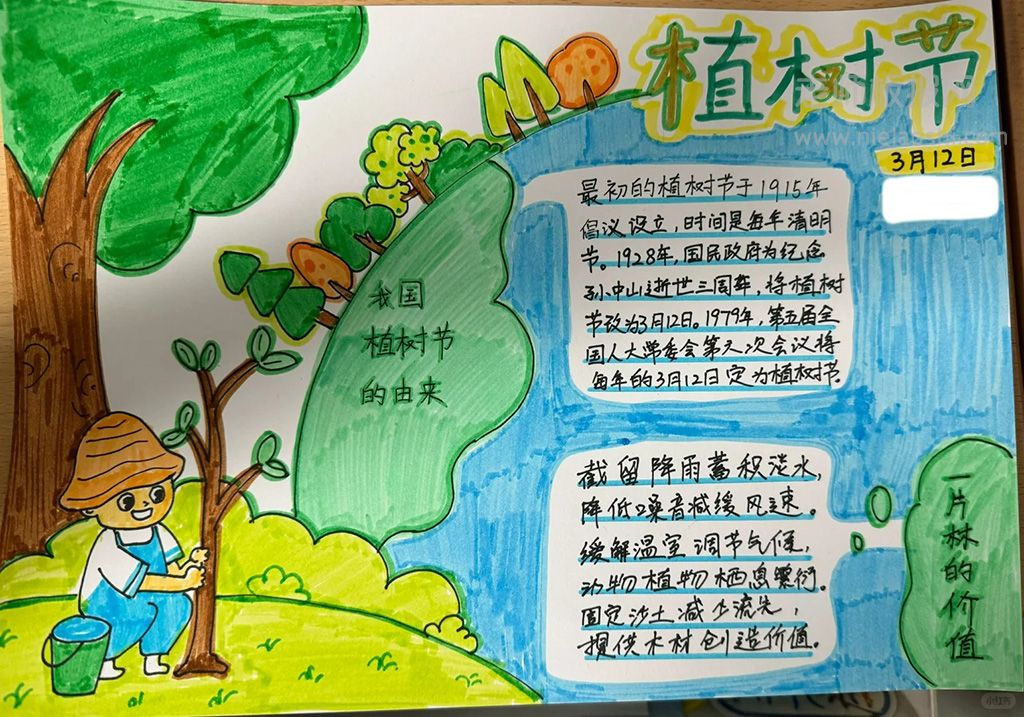 植树节
3月12日
最初的植树节于1915年
倡议设立,时间是每年清明
节。1928年,国民政府为纪念
孙中山逝世三周年,将植树
节改为3月12日。1979年,第五届全
国人大常委会第六次会议将
每年的3月12日定为植树节.
我国
植树节
的由来
截留降雨蓄积淡水,
降低噪音减缓风速。
缓解温室调节气候,
动物植物栖息繁衍.
固定沙土减少流失,
提供木材创造价值。
一片林的价值
小红书